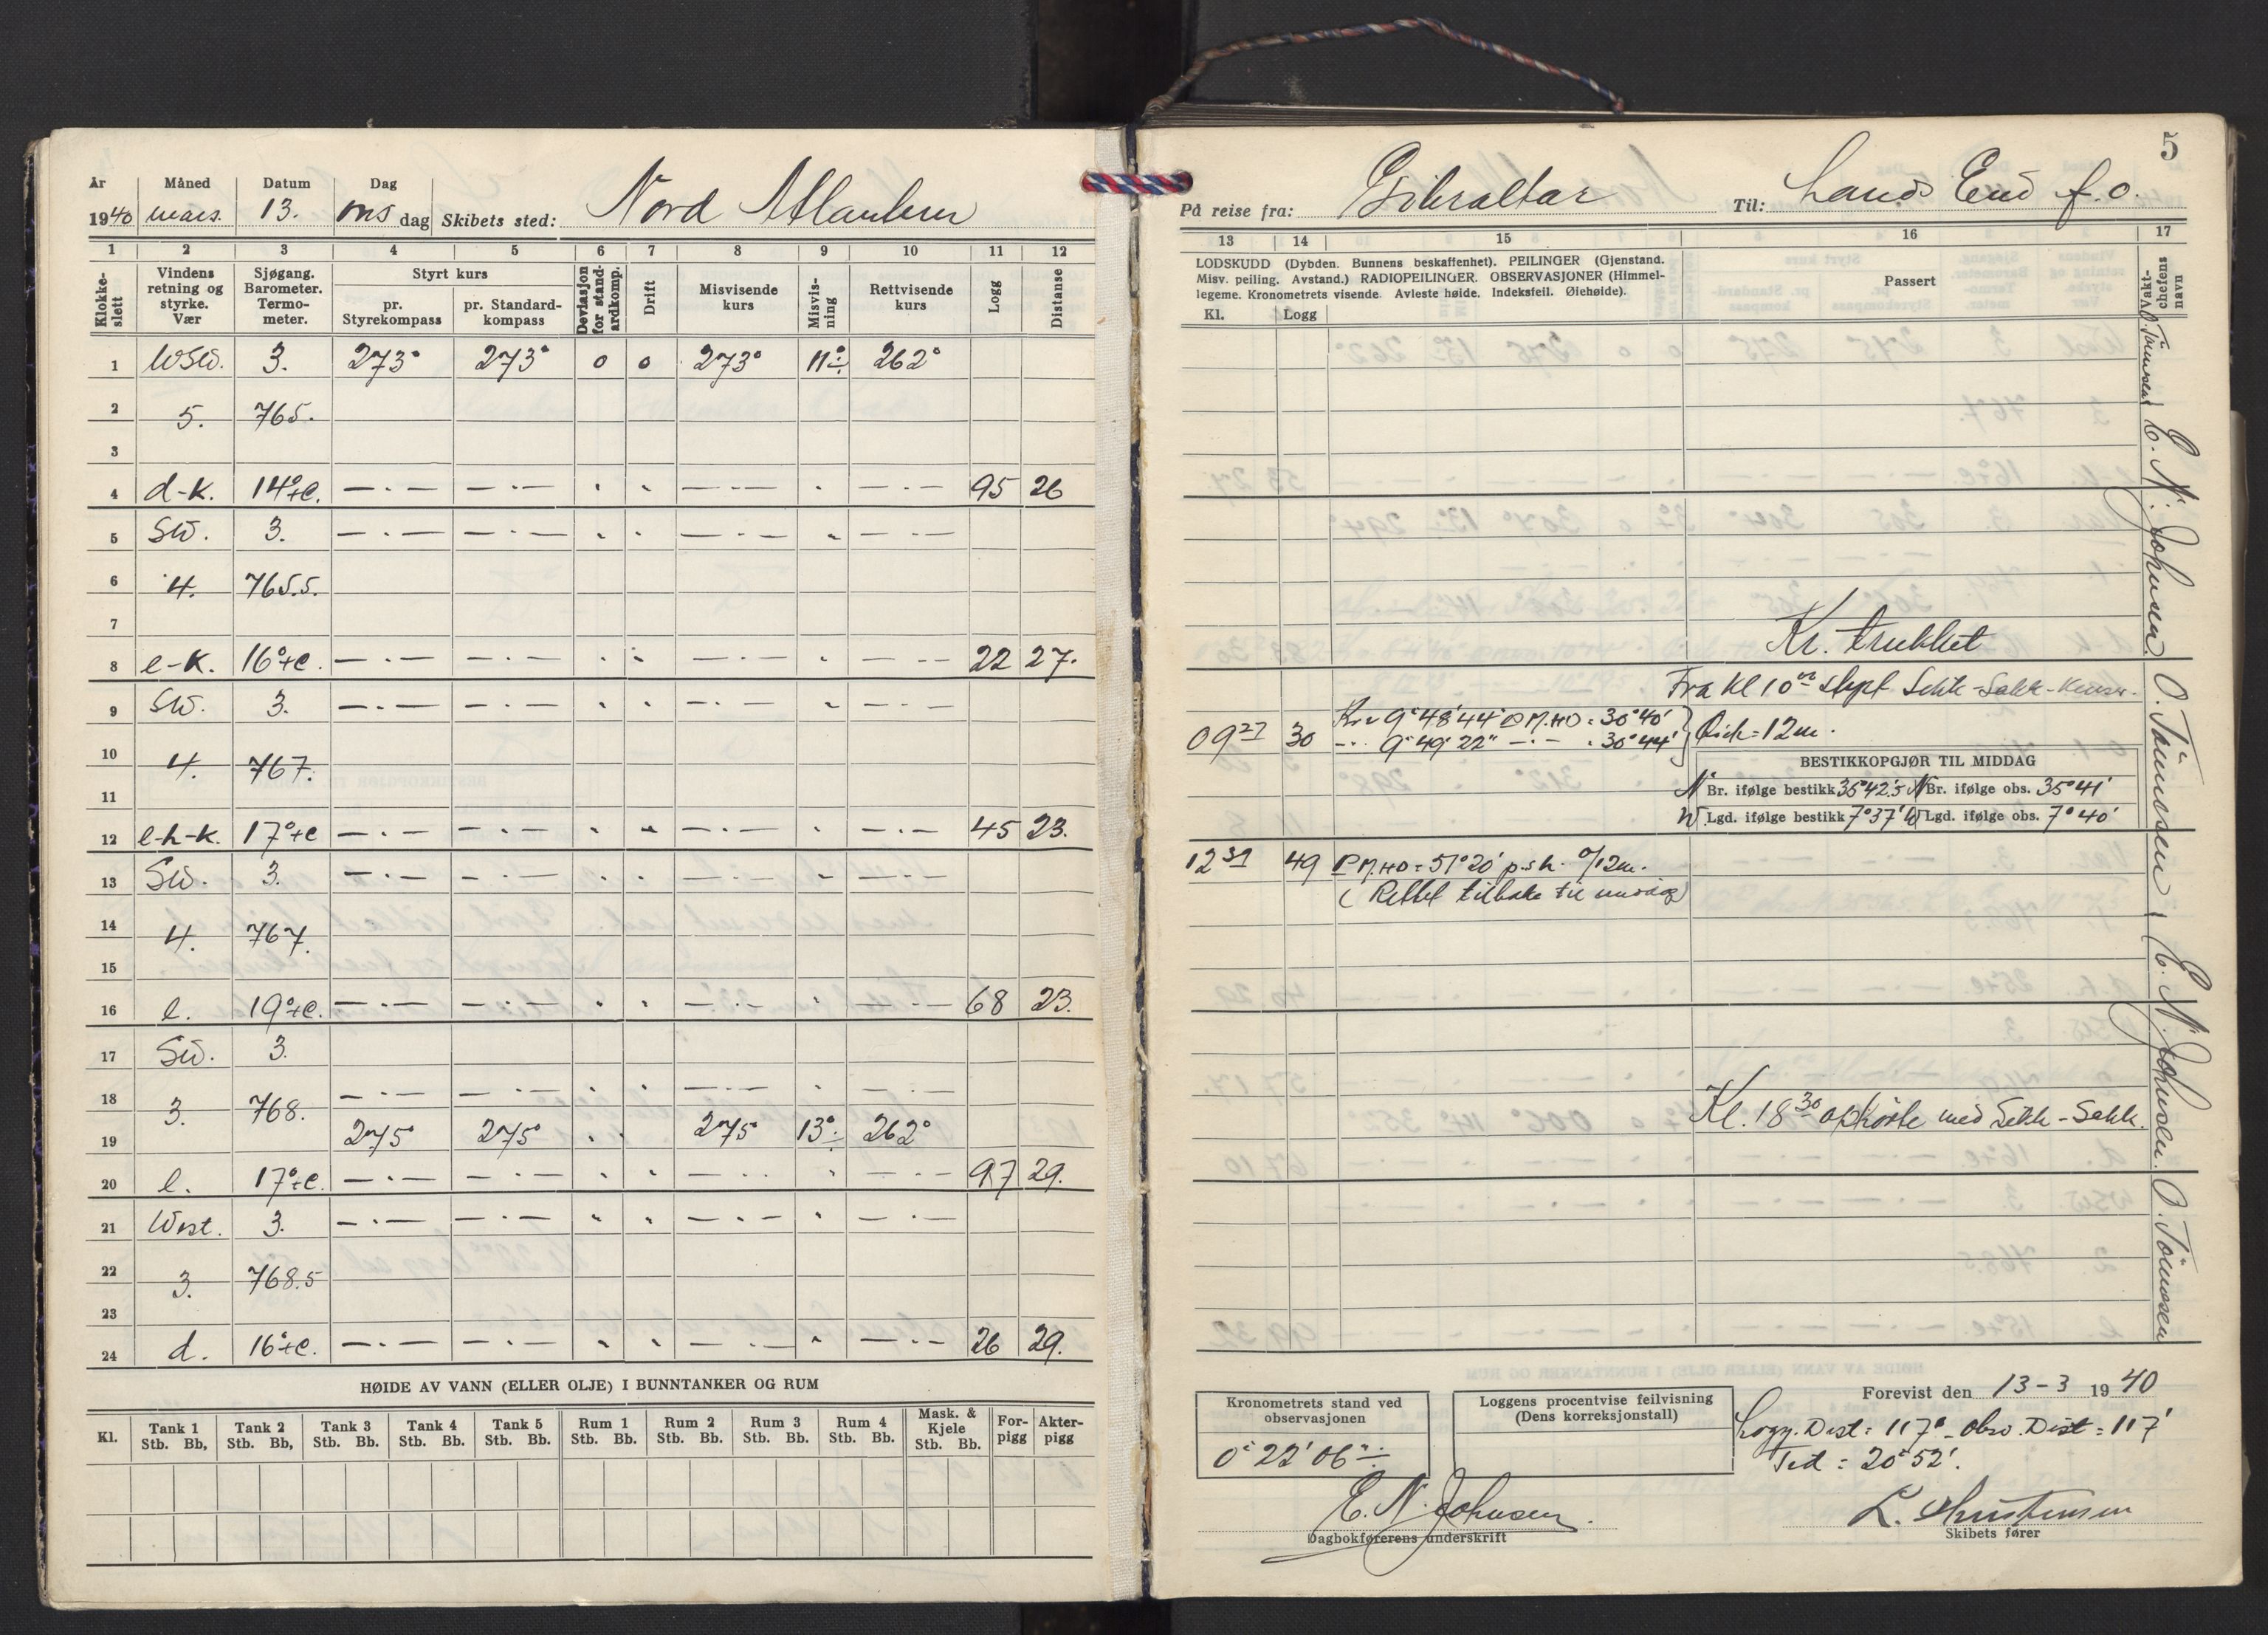 År Måned Datum Dag
1940 mars. 13. ons dag Skibets sted: Nord Atlanteren
1 2 3 4 5 6 7 8 9 10 11 12
Klokkeslett
Vindens retning og styrke. Vær
Sjøgang. Barometer. Termometer.
Styrt kurs
pr. Styrekompass
pr. Standardkompass
Deviasjon for standardkomp.
Drift
Misvisende kurs
Misvisning
Rettvisende kurs
Logg
Distanse
1 WSW. 3. 273° 273° 0 0 273° 11°÷ 262°
2 5. 765.
3
4 d-k. 14°+c. —·— —·— · · —·— · —·— 95 26
5 SW. 3. —·— —·— · · —·— · —·—
6 4. 765.5.
7
8 e-k. 16°+c. —·— —·— · · —·— · —·— 22 27.
9 SW. 3. —·— —·— · · —·— · —·—
10 4. 767.
11
12 e-h-k. 17°+c —·— —·— · · —·— · —·— 45 23.
13 SW. 3. —·— —·— · · —·— · —·—
14 4. 767.
15
16 e. 19°+c. —·— —·— · · —·— · —·— 68 23.
17 SW. 3.
18 3. 768. —·— —·— · · —·— · —·—
19 275° 275° · · 275° 13°÷ 262°
20 e. 17°+c. —·— —·— · · —·— · —·— 97 29.
21 West. 3. —·— —·— · · —·— · —·—
22 3. 768.5
23
24 d. 16°+c. —·— —·— · · —·— · —·— 26 29.
HØIDE AV VANN (ELLER OLJE) I BUNNTANKER OG RUM
Kl. Tank 1 Tank 2 Tank 3 Tank 4 Tank 5 Rum 1 Rum 2 Rum 3 Rum 4 Mask. & Kjele Forpigg Akterpigg
Stb. Bb, Stb. Bb, Stb. Bb. Stb. Bb. Stb. Bb. Stb. Bb. Stb. Bb. Stb. Bb. Stb. Bb. Stb. Bb.
5
På reise fra: Gibraltar Til: Lands End f.o.
13 14 15 16 17
LODSKUDD (Dybden. Bunnens beskaffenhet). PEILINGER (Gjenstand.
Misv. peiling. Avstand.) RADIOPEILINGER. OBSERVASJONER (Himmel-
legeme. Kronometrets visende. Avleste høide. Indeksfeil. Øiehøide).
Kl. Logg
Passert
Vaktchefens navn
E. N. Johnsen.
Kr. trukket
Fra Kl 10 slept Sikk-Sakk-Kurser.
09 27 30 Kr= 9° 48' 44" ☉ M.HO = 30° 40'
—·— 9° 49' 22" —·— · 30° 44' = 12m.
BESTIKKOPGJØR TIL MIDDAG
N Br. ifølge bestikk 35°42.5 N Br. ifølge obs. 35°41'
W Lgd. ifølge bestikk 7°37' W Lgd. ifølge obs. 7°40'
12 31 49 M.HO = 51°20' p.s.h. 0/12m.
(Rettet tilbake til middag)
E. N. Johnsen.
Kl. 18 30 ophørte med Sikk-Sakk.
Forevist den 13-3 1940
Kronometrets stand ved observasjonen
0° 22' 06" ÷
Loggens procentvise feilvisning
(Dens korreksjonstall)
Logg. Dist: 117' - Obsv. Dist = 117'
Tid = 20° 52'.
E. N. Johnsen.
Dagbokførerens underskrift
L. Christensen
Skibets fører